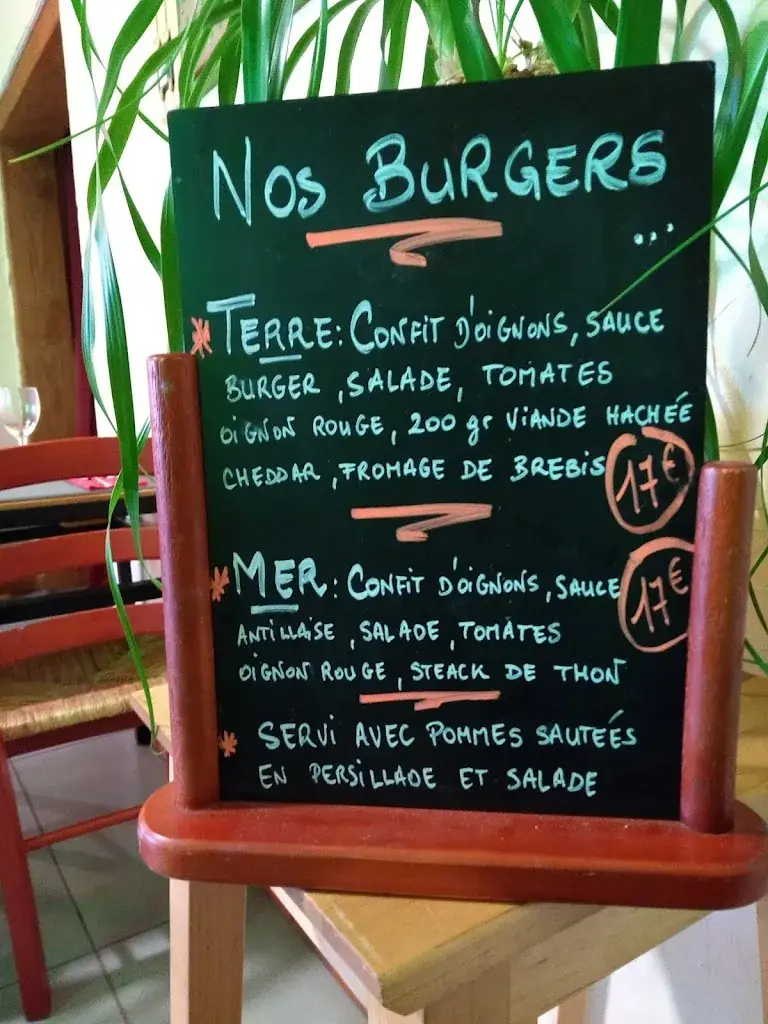 NOS BURGERS
...
* TERRE: CONFIT D'OIGNONS, SAUCE
BURGER, SALADE, TOMATES
OIGNON ROUGE, 200 gr VIANDE HACHÉE
CHEDDAR, FROMAGE DE BREBIS 17€
* MER: CONFIT D'OIGNONS, SAUCE 17€
ANTILLAISE, SALADE, TOMATES
OIGNON ROUGE, STEACK DE THON
* SERVI AVEC POMMES SAUTEÉS
EN PERSILLADE ET SALADE